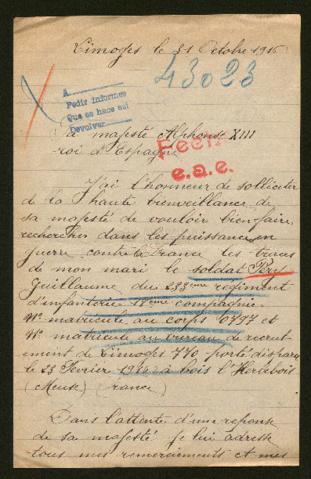 Limoges le 31 Octobre 1916
43023
A
Pedir informes
Que se hace así
Devolver
Sa majesté Alphonse XIII
roi d'Espagne
e.a.e.
J'ai l'honneur de solliciter
de la haute bienveillance de
sa majesté de vouloir bien faire
rechercher dans les puissance en
guerre contre la France les traces
de mon mari le soldat
Guillaume du 233ème régiment
d'infanterie 18ème compagnie
N° matricule au corps 6797 et
N° matricule au bureau de recrut
ement de Limoges 770 porté disparu
le 23 Février à bois l'Herbebois
(Meuse France)
Dans l'attente d'une reponse
de sa majesté je lui adresse
tous mes remerciements et mes